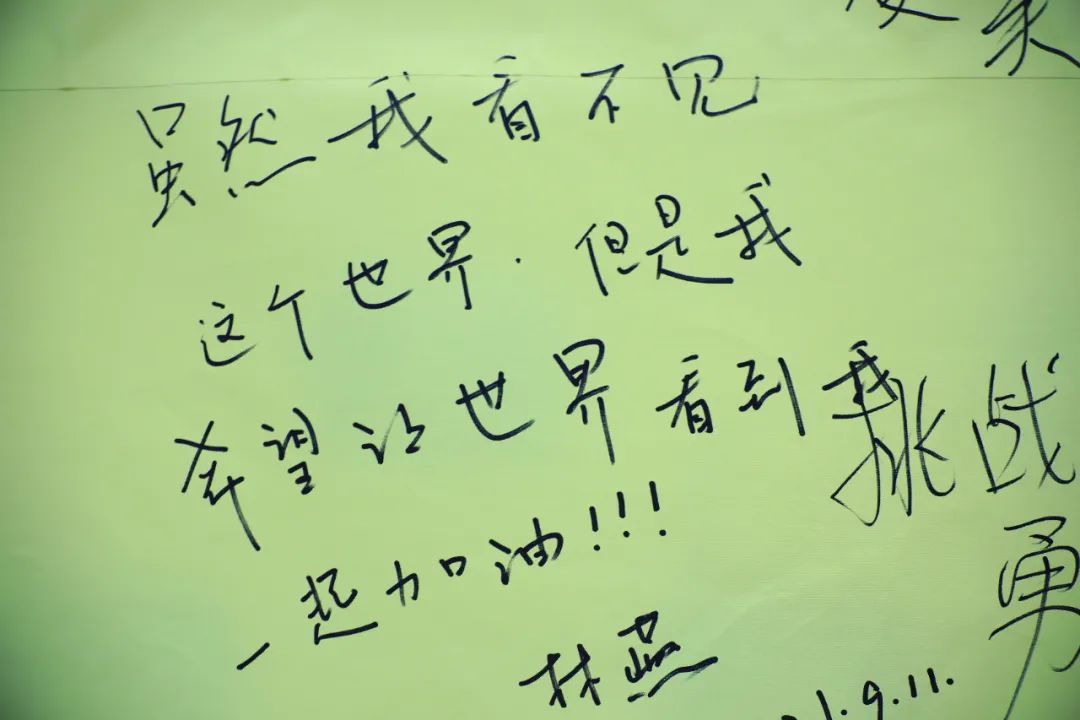 虽然我看不见
这个世界.但是我
希望让世界看到我
一起加油!!!
林燕
挑战
勇
1.9.11.